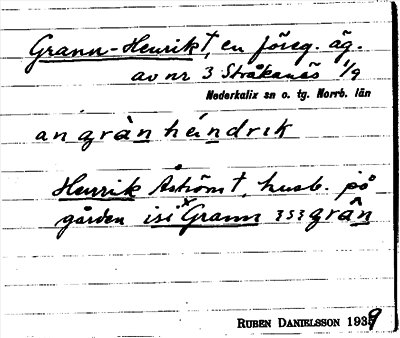 Grann-Henrik†, en föreg. äg.
av nr 3 Stråkanäs 1/9
Nederkalix sn o. tg. Norrb. län
an gràn héindrik
Henrik Åström†, husb. på
gården isi ˣGrann ɜsɜ grân
RUBEN DANIELSSON 1939